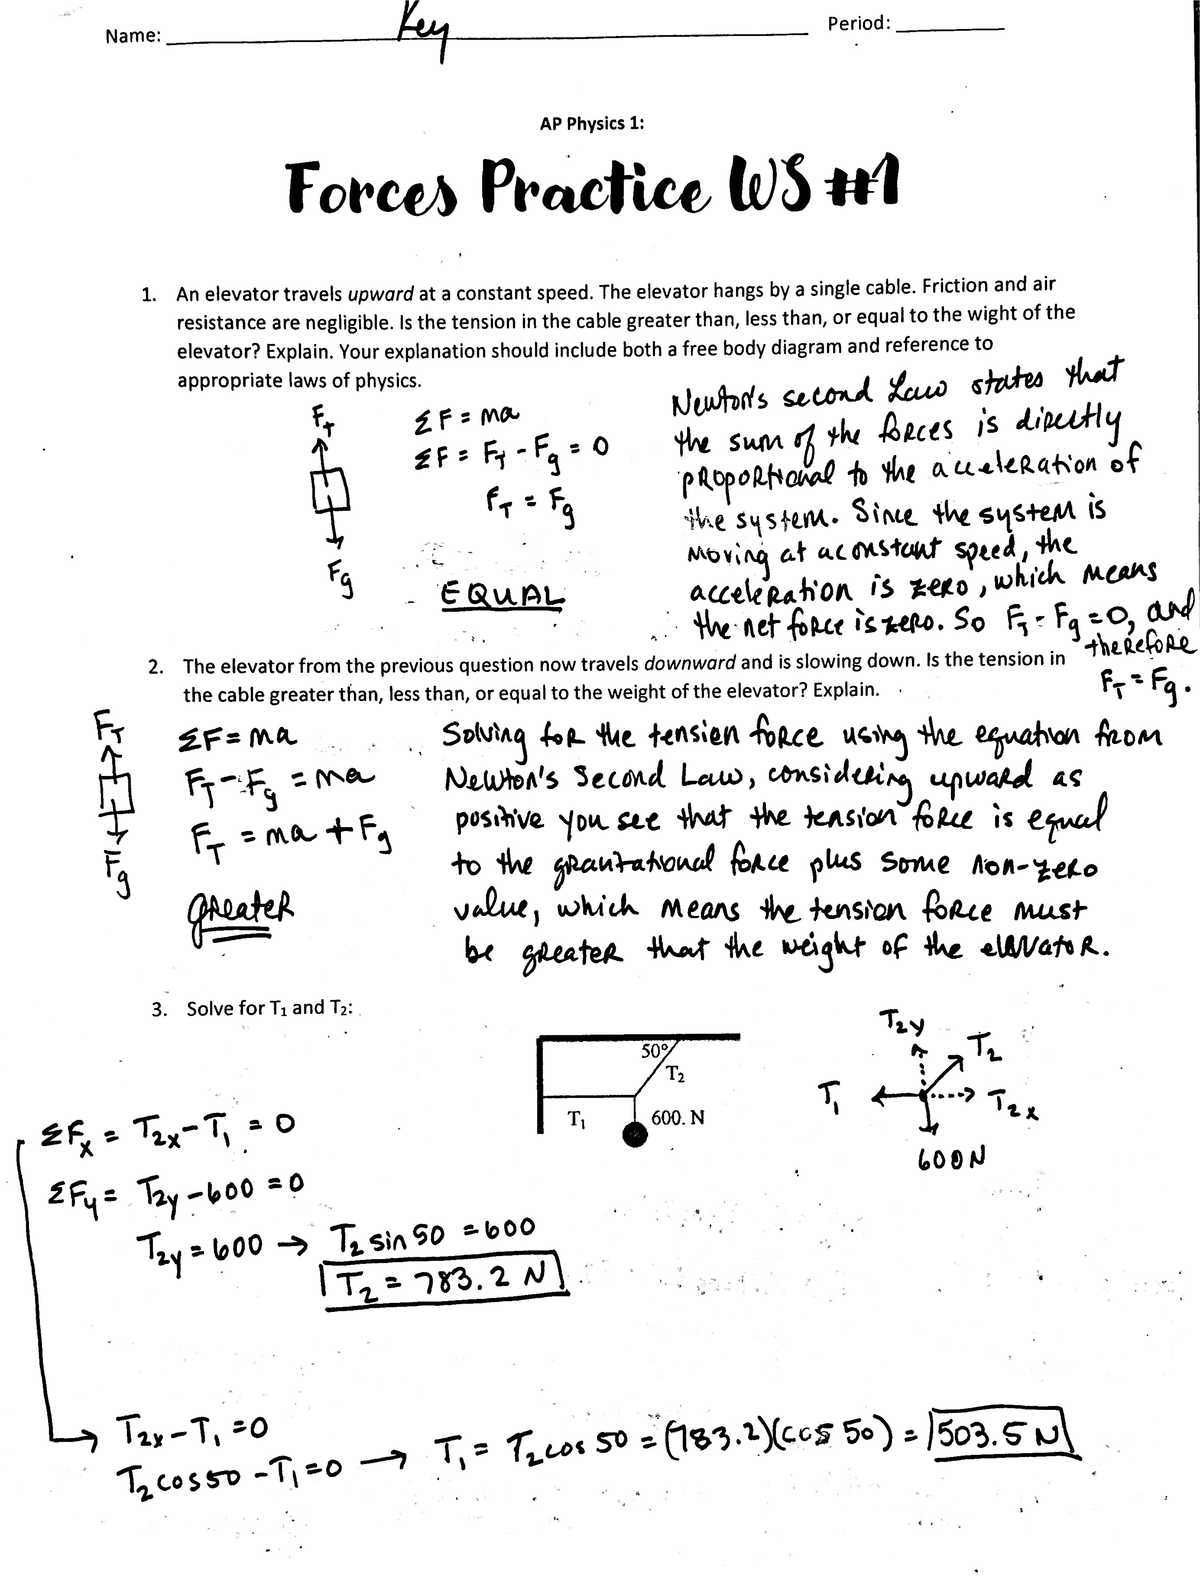 Name: Key Period:
AP Physics 1:
Forces Practice WS #1
1. An elevator travels upward at a constant speed. The elevator hangs by a single cable. Friction and air
resistance are negligible. Is the tension in the cable greater than, less than, or equal to the wight of the
elevator? Explain. Your explanation should include both a free body diagram and reference to
appropriate laws of physics.
F_T
F_g
ΣF = ma
ΣF = F_T - F_g = 0
F_T = F_g
EQUAL
Newton's second Law states that
the sum of the forces is directly
proportional to the acceleration of
the system. Since the system is
moving at a constant speed, the
acceleration is zero, which means
the net force is zero. So F_T - F_g = 0, and
therefore
F_T = F_g.
2. The elevator from the previous question now travels downward and is slowing down. Is the tension in
the cable greater than, less than, or equal to the weight of the elevator? Explain.
F_T
F_g
ΣF = ma
F_T - F_g = ma
F_T = ma + F_g
greater
Solving for the tension force using the equation from
Newton's Second Law, considering upward as
positive you see that the tension force is equal
to the gravitational force plus some non-zero
value, which means the tension force must
be greater that the weight of the elevator.
3. Solve for T₁ and T₂:
50°
T₂
T₁
600. N
T₂y
T₂
T₁
T₂x
600N
ΣFx = T₂x - T₁ = 0
ΣFy = T₂y - 600 = 0
T₂y = 600 → T₂ sin 50 = 600
T₂ = 783.2 N
T₂x - T₁ = 0
T₂ cos 50 - T₁ = 0 → T₁ = T₂ cos 50 = (783.2)(cos 50) = 503.5 N